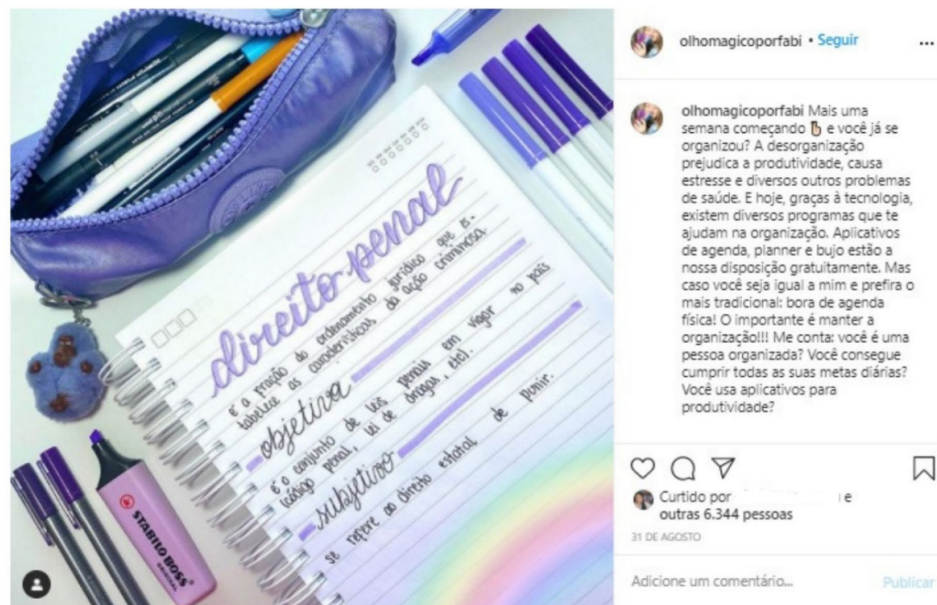 direito penal
é a fração do ordenamento jurídico que es-
tabelece as características da ação criminosa.
objetiva
é o conjunto de leis penais em vigor no país
(código penal, lei de drogas, etc).
subjetivo
se refere ao direito estatal de punir.
STABILO BOSS
ORIGINAL
olhomagicoporfabi • Seguir
olhomagicoporfabi Mais uma
semana começando 👆🏻 e você já se
organizou? A desorganização
prejudica a produtividade, causa
estresse e diversos outros problemas
de saúde. E hoje, graças à tecnologia,
existem diversos programas que te
ajudam na organização. Aplicativos
de agenda, planner e bujo estão a
nossa disposição gratuitamente. Mas
caso você seja igual a mim e prefira o
mais tradicional: bora de agenda
física! O importante é manter a
organização!!! Me conta: você é uma
pessoa organizada? Você consegue
cumprir todas as suas metas diárias?
Você usa aplicativos para
produtividade?
Curtido por e
outras 6.344 pessoas
31 DE AGOSTO
Adicione um comentário...
Publicar